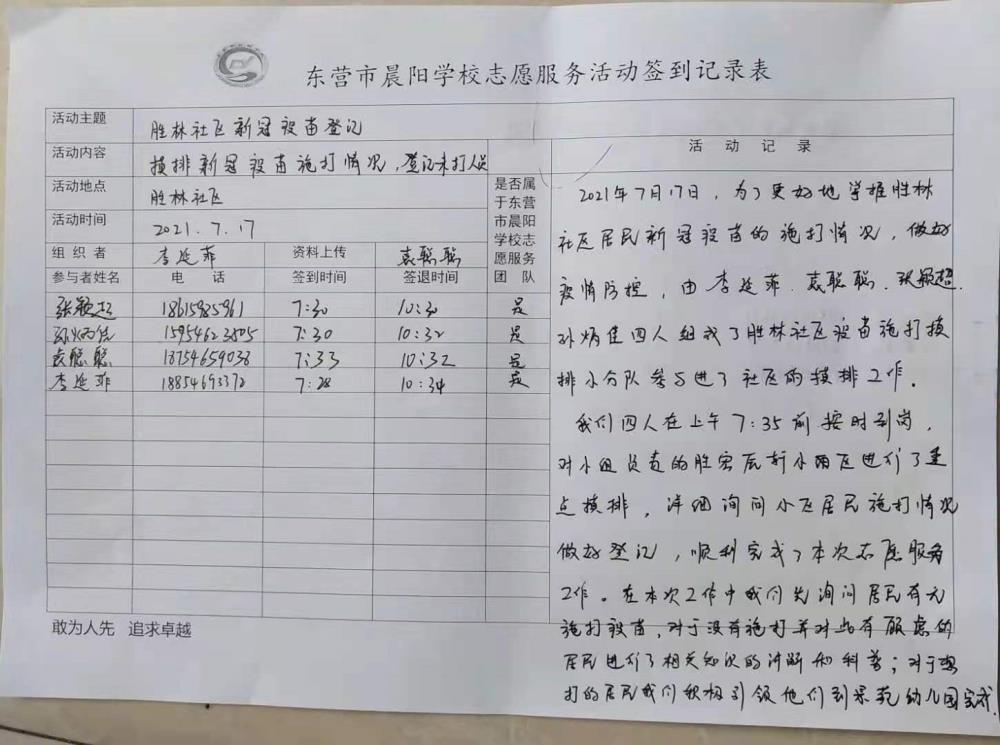 东营市晨阳学校志愿服务活动签到记录表
活动主题 胜林社区新冠疫苗登记
活动内容 摸排新冠疫苗施打情况，登记未打人员
活动地点 胜林社区
活动时间 2021.7.17
组织者 李延菲 资料上传 袁聪聪
参与者姓名 电话 签到时间 签退时间
是否属于东营市晨阳学校志愿服务团队
张颖超 18615985961 7:30 10:30 是
孙炳佳 15954623805 7:30 10:32 是
袁聪聪 18754659038 7:33 10:32 是
李延菲 18854693372 7:28 10:34 是
敢为人先 追求卓越
活动记录
2021年7月17日，为了更好地掌握胜林
社区居民新冠疫苗的施打情况，做好
疫情防控，由李延菲、袁聪聪、张颖超、
孙炳佳四人组成了胜林社区疫苗施打摸
排小分队参与进了社区的摸排工作。
我们四人在上午7:35前按时到岗，
对小组负责的胜宏 小 区进行了重
点摸排，详细询问小区居民施打情况
做好登记，顺利完成了本次志愿服务
工作。在本次工作中我们先询问居民有无
施打疫苗，对于没有施打并对此有顾虑的
居民进行了相关知识的讲解和科普；对于想
打的居民我们积极引领他们到 幼儿园完成.